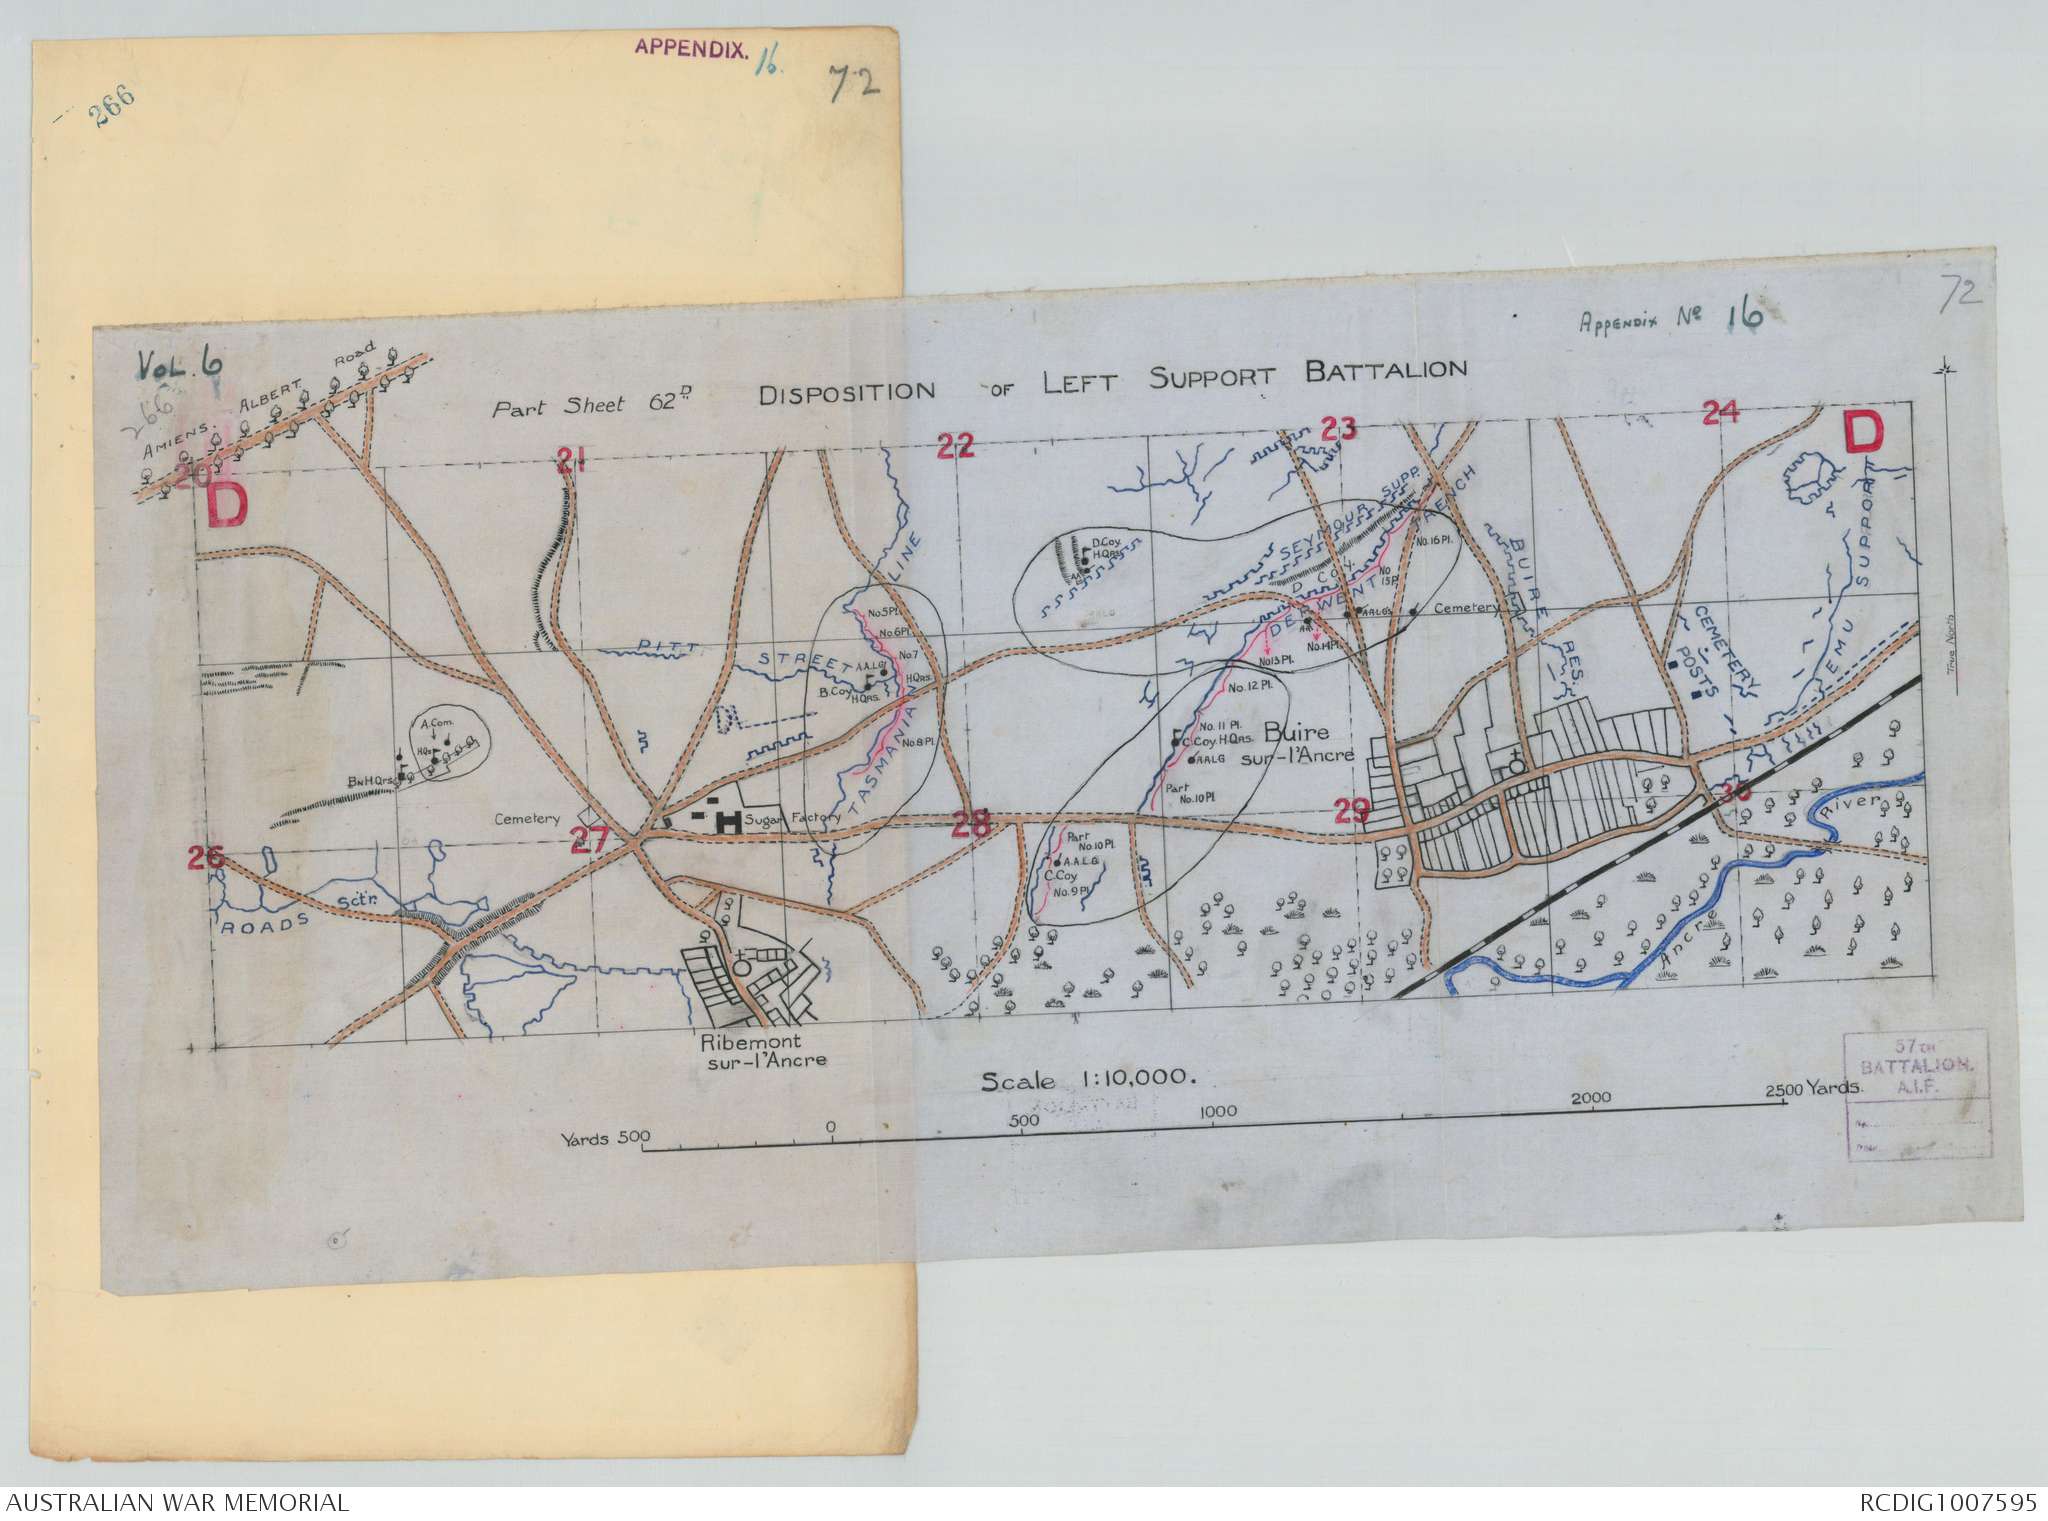 APPENDIX. 16.
72
266
72
Appendix No 16
Vol. 6
266
AMIENS. ALBERT Road
Part Sheet 62D
DISPOSITION OF LEFT SUPPORT BATTALION
20
21
22
23
24
D
D
SUPPORT
EMU
SEYMOUR SUPP.
DERWENT TRENCH
D Coy.
D.Coy
H.Qrs.
No.16 Pl.
No
15 P.
A.A.L.G's
Cemetery
BUIRE
RES.
CEMETERY
POSTS
True North
No.14 Pl.
No.13 Pl.
No.12 Pl.
No. 11 Pl.
C.Coy. H.Qrs.
A.A.L.G
Part
No.10 Pl.
Buire
sur-l'Ancre
LINE
No.5 Pl.
No.6 Pl.
No.7
A.A.L.G
H.Qrs.
B.Coy
H.Qrs.
No.8 Pl.
TASMANIAN
PITT
STREET
A.Com.
H.Qrs
Bn H.Qrs.
Cemetery
Sugar Factory
26
27
28
29
30
River
Ancre
Part
No.10 Pl.
A.A.L.G.
C.Coy
No.9 Pl.
ROADS Sctr.
Ribemont
sur-l'Ancre
Scale 1:10,000.
Yards 500 0 500 1000 2000 2500 Yards.
57TH
BATTALION.
A.I.F.
AUSTRALIAN WAR MEMORIAL
RCDIG1007595